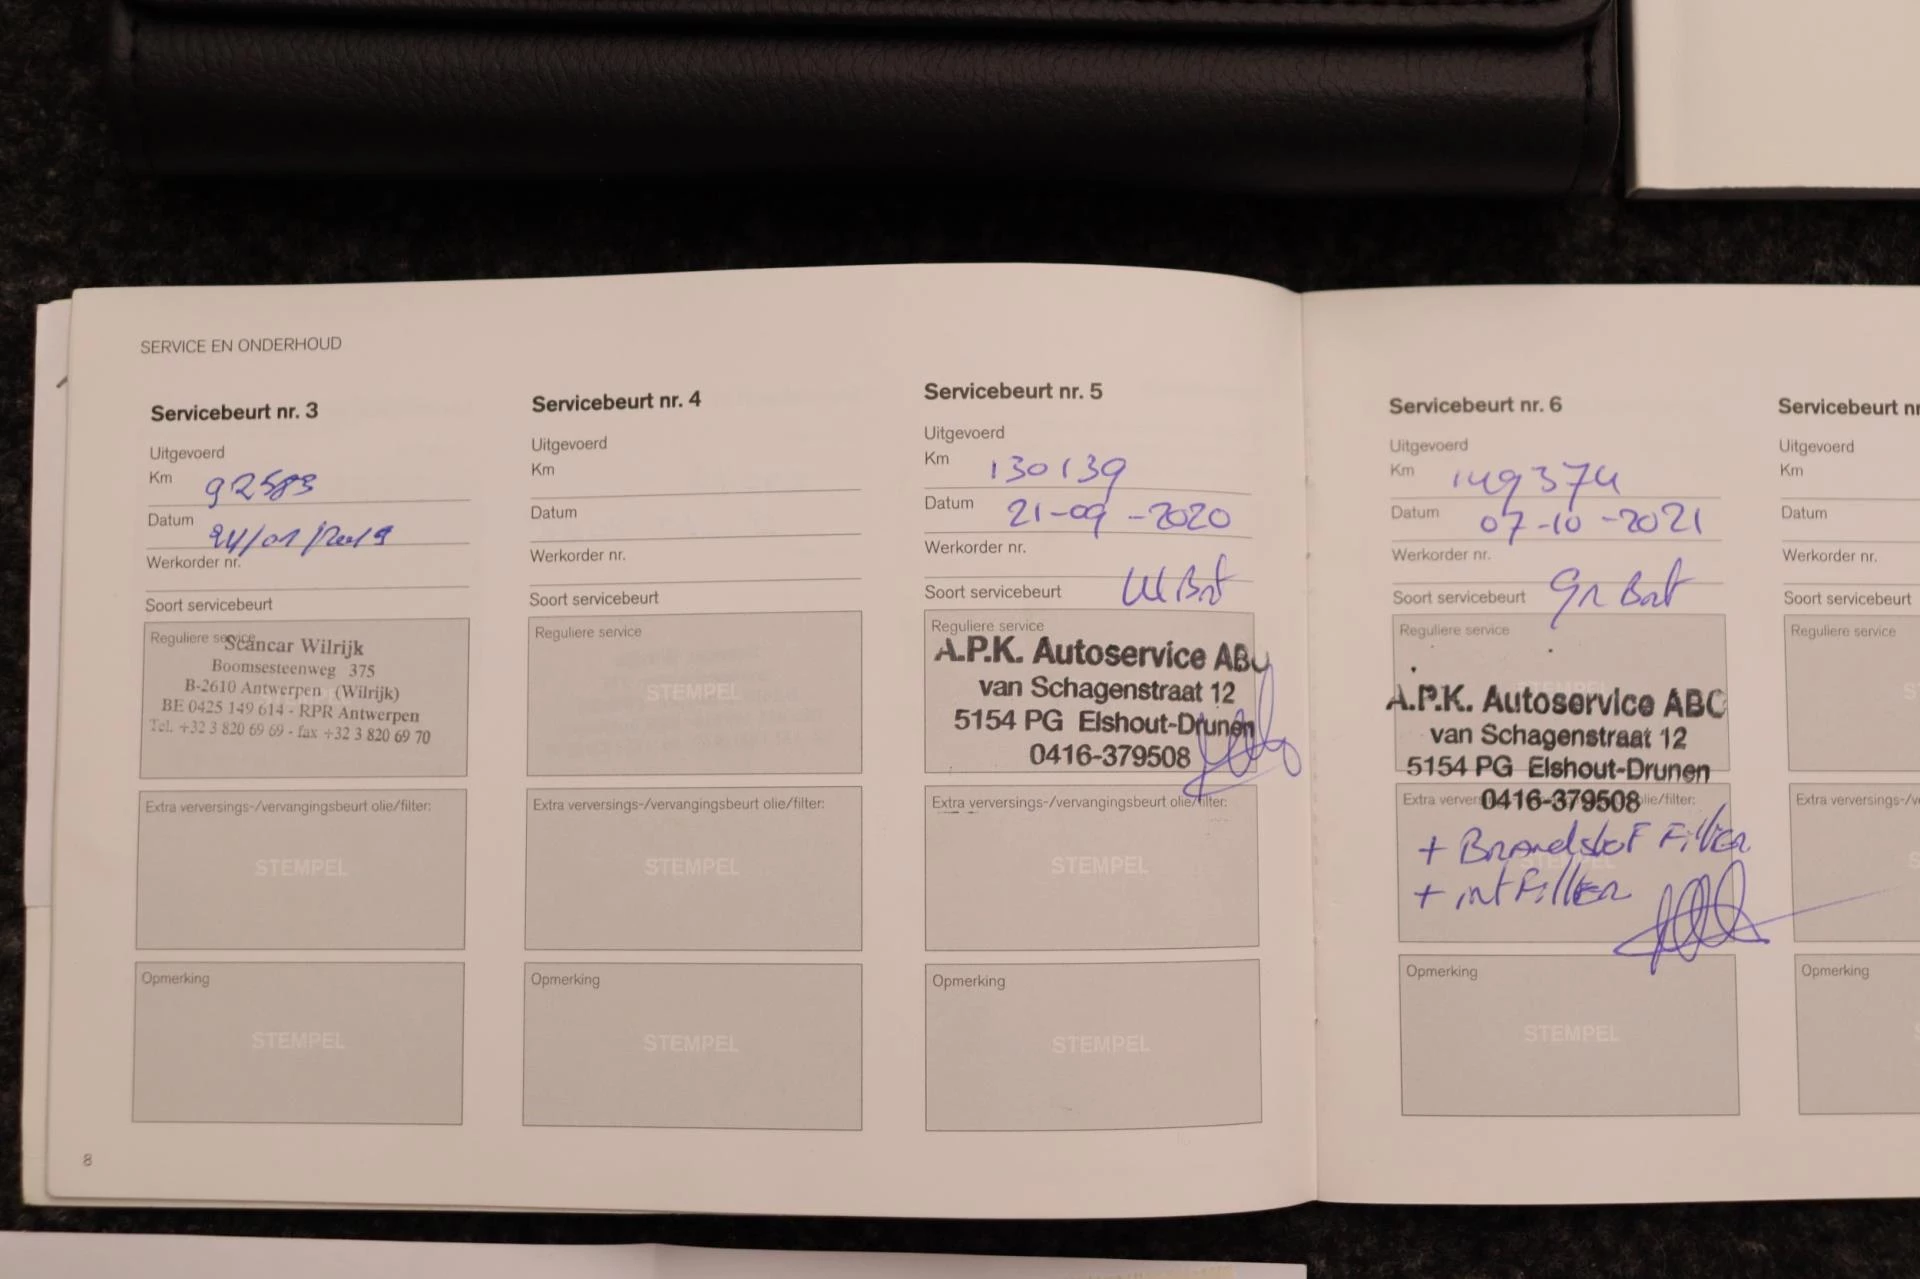 SERVICE EN ONDERHOUD
Servicebeurt nr. 3
Uitgevoerd
Km 92583
Datum 24/01/2019
Werkorder nr.
Soort servicebeurt
Reguliere service
Scancar Wilrijk
Boomsesteenweg 375
B-2610 Antwerpen (Wilrijk)
BE 0425 149 614 - RPR Antwerpen
Tel. +32 3 820 69 69 - fax +32 3 820 69 70
Extra verversings-/vervangingsbeurt olie/filter:
STEMPEL
Opmerking
STEMPEL
8
Servicebeurt nr. 4
Uitgevoerd
Km
Datum
Werkorder nr.
Soort servicebeurt
Reguliere service
STEMPEL
Extra verversings-/vervangingsbeurt olie/filter:
STEMPEL
Opmerking
STEMPEL
Servicebeurt nr. 5
Uitgevoerd
Km 130139
Datum 21-09-2020
Werkorder nr.
Soort servicebeurt
Reguliere service
A.P.K. Autoservice ABC
van Schagenstraat 12
5154 PG Elshout-Drunen
0416-379508
Extra verversings-/vervangingsbeurt olie/filter:
STEMPEL
Opmerking
STEMPEL
Servicebeurt nr. 6
Uitgevoerd
Km 149374
Datum 07-10-2021
Werkorder nr.
Soort servicebeurt Gr Bat
Reguliere service
A.P.K. Autoservice ABC
van Schagenstraat 12
5154 PG Elshout-Drunen
0416-379508
Extra olie/filter:
+ Brandstof Filter
+ int Filter
STEMPEL
Opmerking
STEMPEL
Servicebeurt
Uitgevoerd
Km
Datum
Werkorder nr.
Soort servicebeurt
Reguliere service
Extra verversings-/v
Opmerking